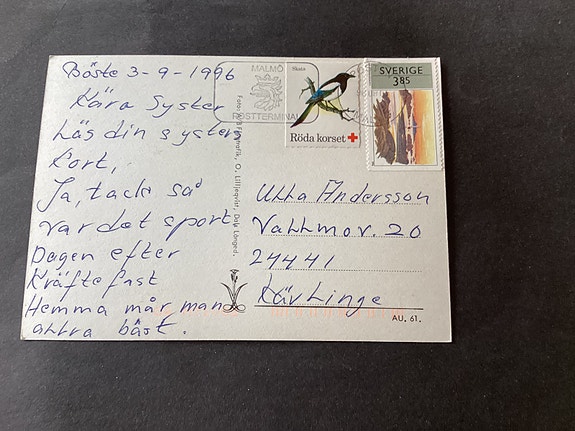 Böste 3-9-1996
Kära Syster
Läs din syster
kort,
Ja, tack så
var det sport
Dagen efter
Kräftefest
Hemma mår man
allra bäst.
MALMÖ
POSTTERMINAL
Skata
Röda korset
SVERIGE
3.85
Ulla Andersson
Vallmov. 20
24441
Kävlinge
AU. 61.